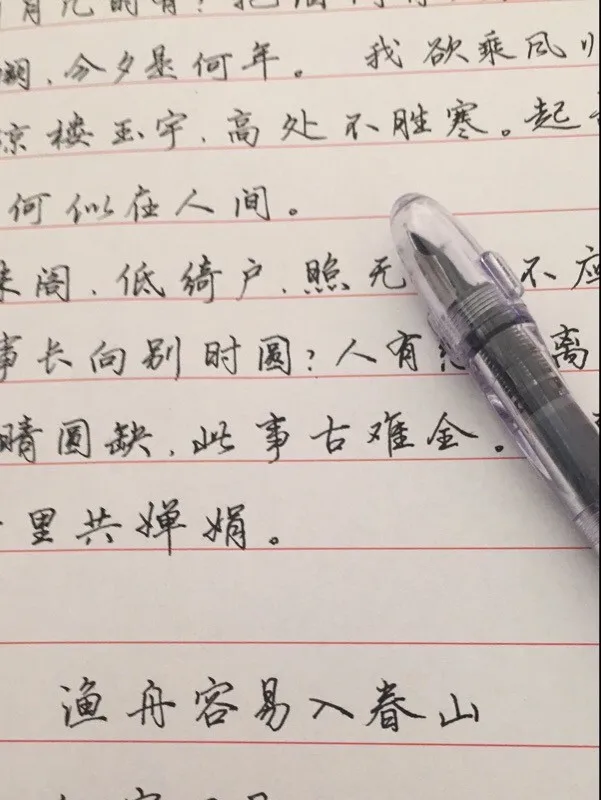 月几时有？把酒问
阙，今夕是何年。 我欲乘风
琼楼玉宇，高处不胜寒。起
何似在人间。
朱阁、低绮户、照无 不应
事长向别时圆？人有 离
晴圆缺，此事古难全。
里共婵娟。
渔舟容易入春山